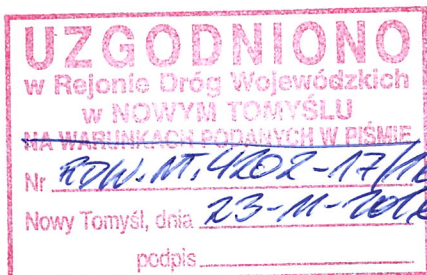 UZGODNIONO
w Rejonie Dróg Wojewódzkich
w NOWYM TOMYŚLU
NA WARUNKACH PODANYCH W PIŚMIE
Nr RDW.NT.4202-17/16
Nowy Tomyśl, dnia 23-11-2016
podpis